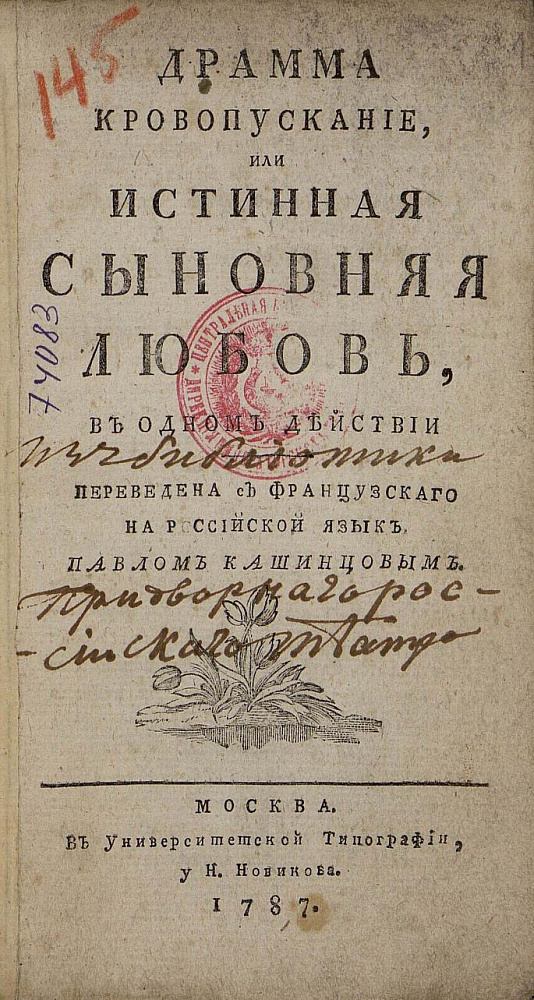 145
ДРАММА
КРОВОПУСКАНІЕ,
ИЛИ
ИСТИННАЯ
СЫНОВНЯЯ
ЛЮБОВЬ,
ВЪ ОДНОМЪ ДѢЙСТВІИ
74083
ЦЕНТРАЛЬНАЯ
изъ библіотики
ПЕРЕВЕДЕНА съ ФРАНЦУЗСКАГО
НА РОССІЙСКОЙ ЯЗЫКЪ
ПАВЛОМЪ КАШИНЦОВЫМЪ.
придворнаго рос-
-сійскаго тѣатра
МОСКВА.
Въ Университетской Типографіи,
у Н. Новикова.
1787.